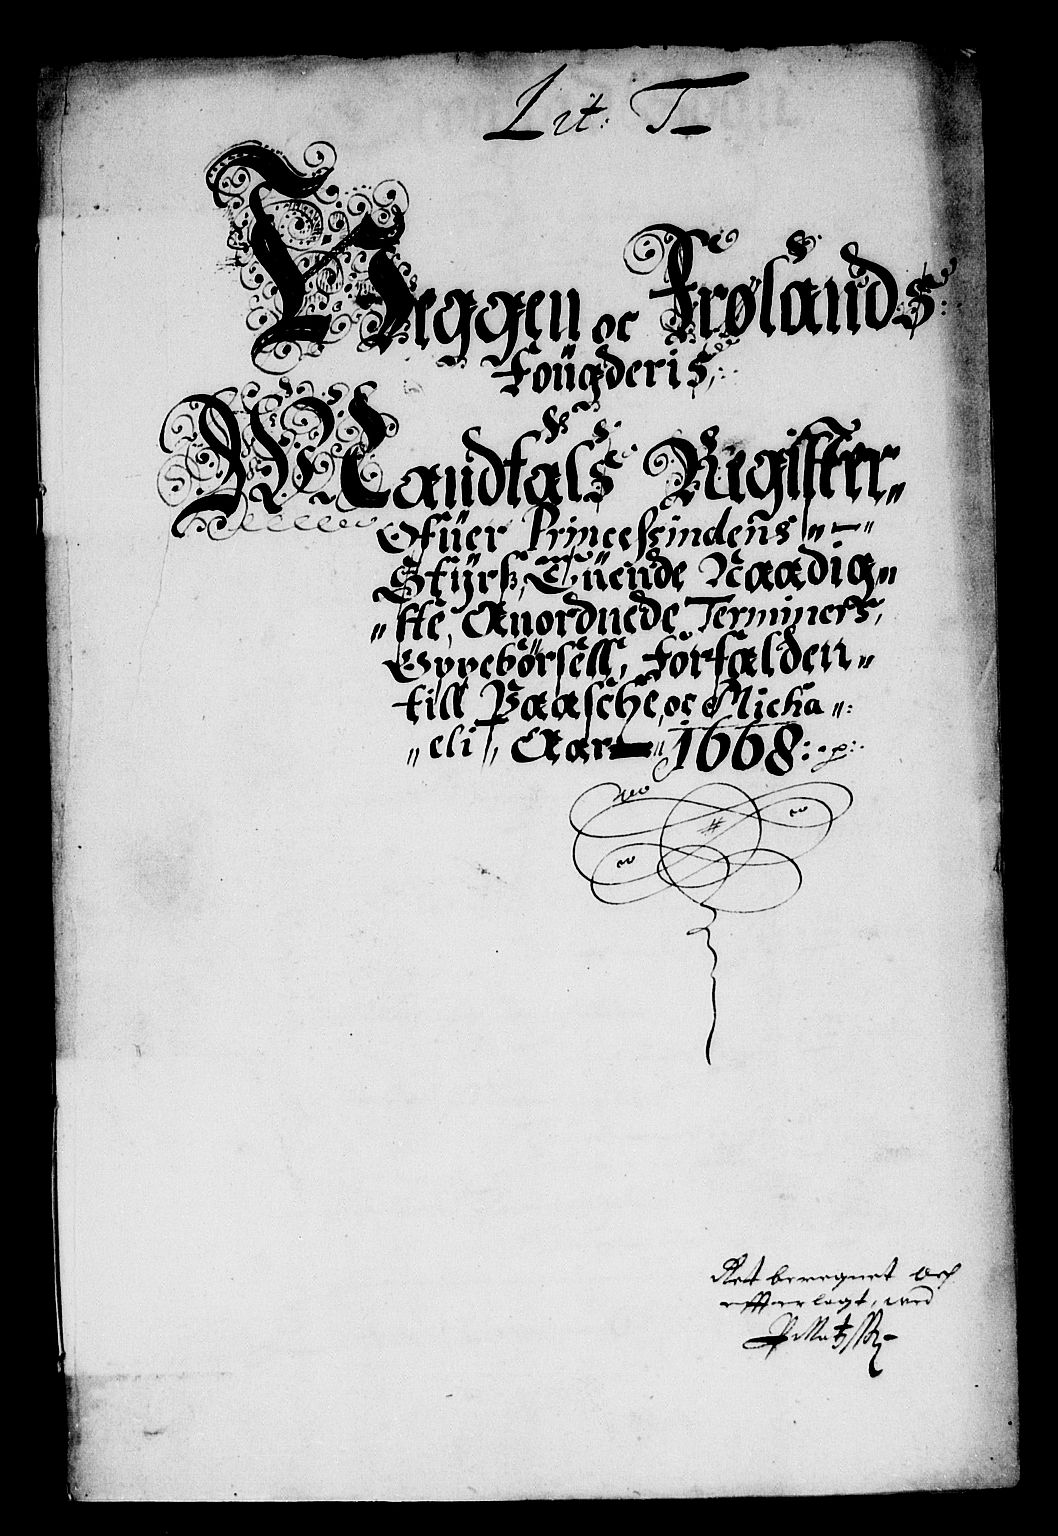 Lit: T
Veggen oc Frølands:
Foügderis,:.
Mandtals Register„
Ofüer Princessindens „–„
Styrs, Tüende Naadig„
„ste, Anordnede Terminers,
Oppebörsell, Forfalden„
till Paasche, oc Micha„:
„eli„ Aar „1668:.p:.
Ret beregnet och
effterlagt, med